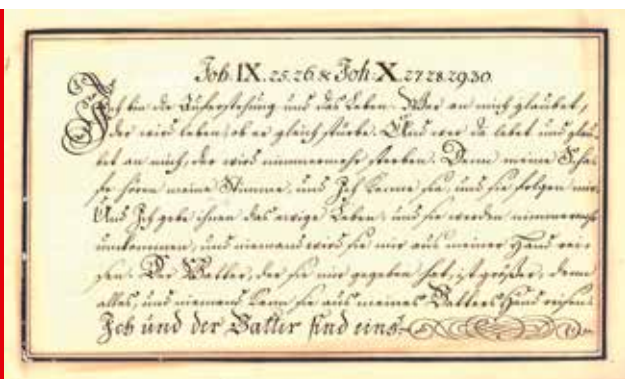 Joh. IX. 25. 26. & Joh. X. 27 28. 29. 30.
Ich bin die Auferstehung und das Leben. Wer an mich glaubet,
der wird leben, ob er gleich stürbe. Und wer da lebet und glau-
bet an mich, der wird nimmermehr sterben. Denn meine Scha-
fe hören meine Stimme, und Ich kenne sie, und sie folgen mir.
Und Ich gebe ihnen das ewige Leben, und sie werden nimmermehr
umkommen, und niemand wird sie mir aus meiner Hand rei-
sen. Der Vatter, der sie mir gegeben hat, ist größer, denn
alles, und niemand kann sie aus meines Vatters Hand reisen.
Ich und der Vatter sind eins.